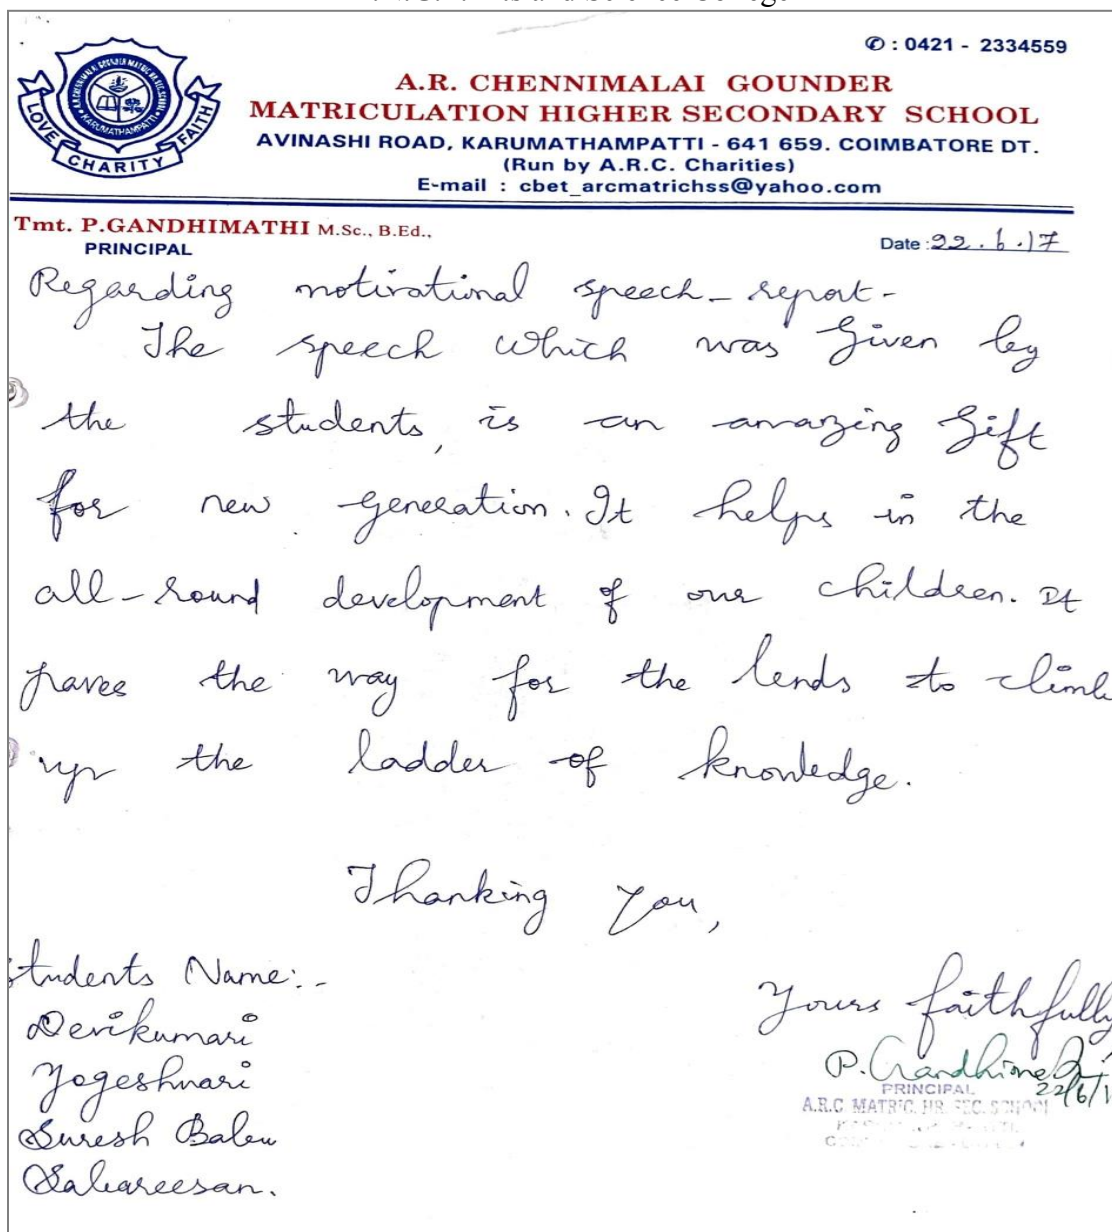 ✆ : 0421 - 2334559
A.R. CHENNIMALAI GOUNDER
MATRICULATION HIGHER SECONDARY SCHOOL
AVINASHI ROAD, KARUMATHAMPATTI - 641 659. COIMBATORE DT.
(Run by A.R.C. Charities)
E-mail : cbet_arcmatrichss@yahoo.com
LOVE CHARITY FAITH
Tmt. P.GANDHIMATHI M.Sc., B.Ed.,
PRINCIPAL
Date : 22.6.17
Regarding motivational speech - report -
The speech which was given by
the students, is an amazing gift
for new generation. It helps in the
all-round development of our children. It
paves the way for the lends to climb
up the ladder of knowledge.
Thanking you,
Students Name:-
Devikumari
Yogeshwari
Suresh Babu
Sabareesan.
Yours faithfully
P. Gandhimathi
22/6/1
PRINCIPAL
A.R.C. MATRIC. HR. SEC. SCHOOL